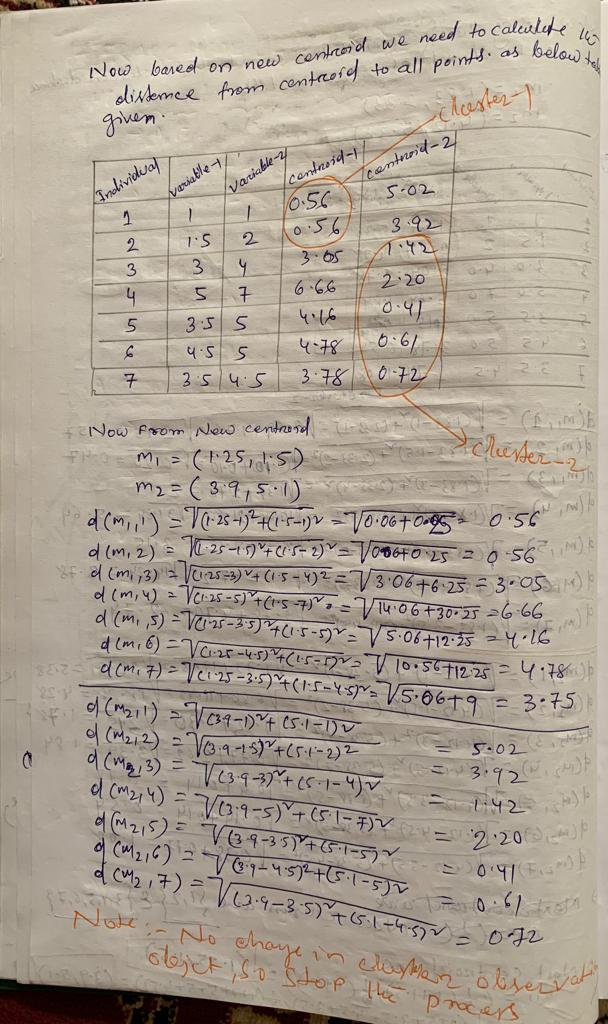 Now based on new centroid we need to calculate the
distence from centroid to all points. as below
given.
cluster-1
Individual variable-1 variable-2 centroid-1 centroid-2
1 1 1 0.56 5.02
2 1.5 2 0.56 3.92
3 3 4 3.05 1.42
4 5 7 6.66 2.20
5 3.5 5 4.16 0.41
6 4.5 5 4.78 0.61
7 3.5 4.5 3.78 0.72
Now From New centroid
cluster-2
m₁ = (1.25, 1.5)
m₂ = (3.9, 5.1)
d(m₁,1) = √(1.25-1)²+(1.5-1)² = √0.06+0.25 = 0.56
d(m₁,2) = √(1.25-1.5)²+(1.5-2)² = √0.06+0.25 = 0.56
d(m₁,3) = √(1.25-3)²+(1.5-4)² = √3.06+6.25 = 3.05
d(m₁,4) = √(1.25-5)²+(1.5-7)² = √14.06+30.25 = 6.66
d(m₁,5) = √(1.25-3.5)²+(1.5-5)² = √5.06+12.25 = 4.16
d(m₁,6) = √(1.25-4.5)²+(1.5-5)² = √10.56+12.25 = 4.78
d(m₁,7) = √(1.25-3.5)²+(1.5-4.5)² = √5.06+9 = 3.75
d(m₂,1) = √(3.9-1)²+(5.1-1)² = 5.02
d(m₂,2) = √(3.9-1.5)²+(5.1-2)² = 3.92
d(m₂,3) = √(3.9-3)²+(5.1-4)² = 1.42
d(m₂,4) = √(3.9-5)²+(5.1-7)² = 2.20
d(m₂,5) = √(3.9-3.5)²+(5.1-5)² = 0.41
d(m₂,6) = √(3.9-4.5)²+(5.1-5)² = 0.61
d(m₂,7) = √(3.9-3.5)²+(5.1-4.5)² = 0.72
Note:- No change in cluster
object, so stop the process